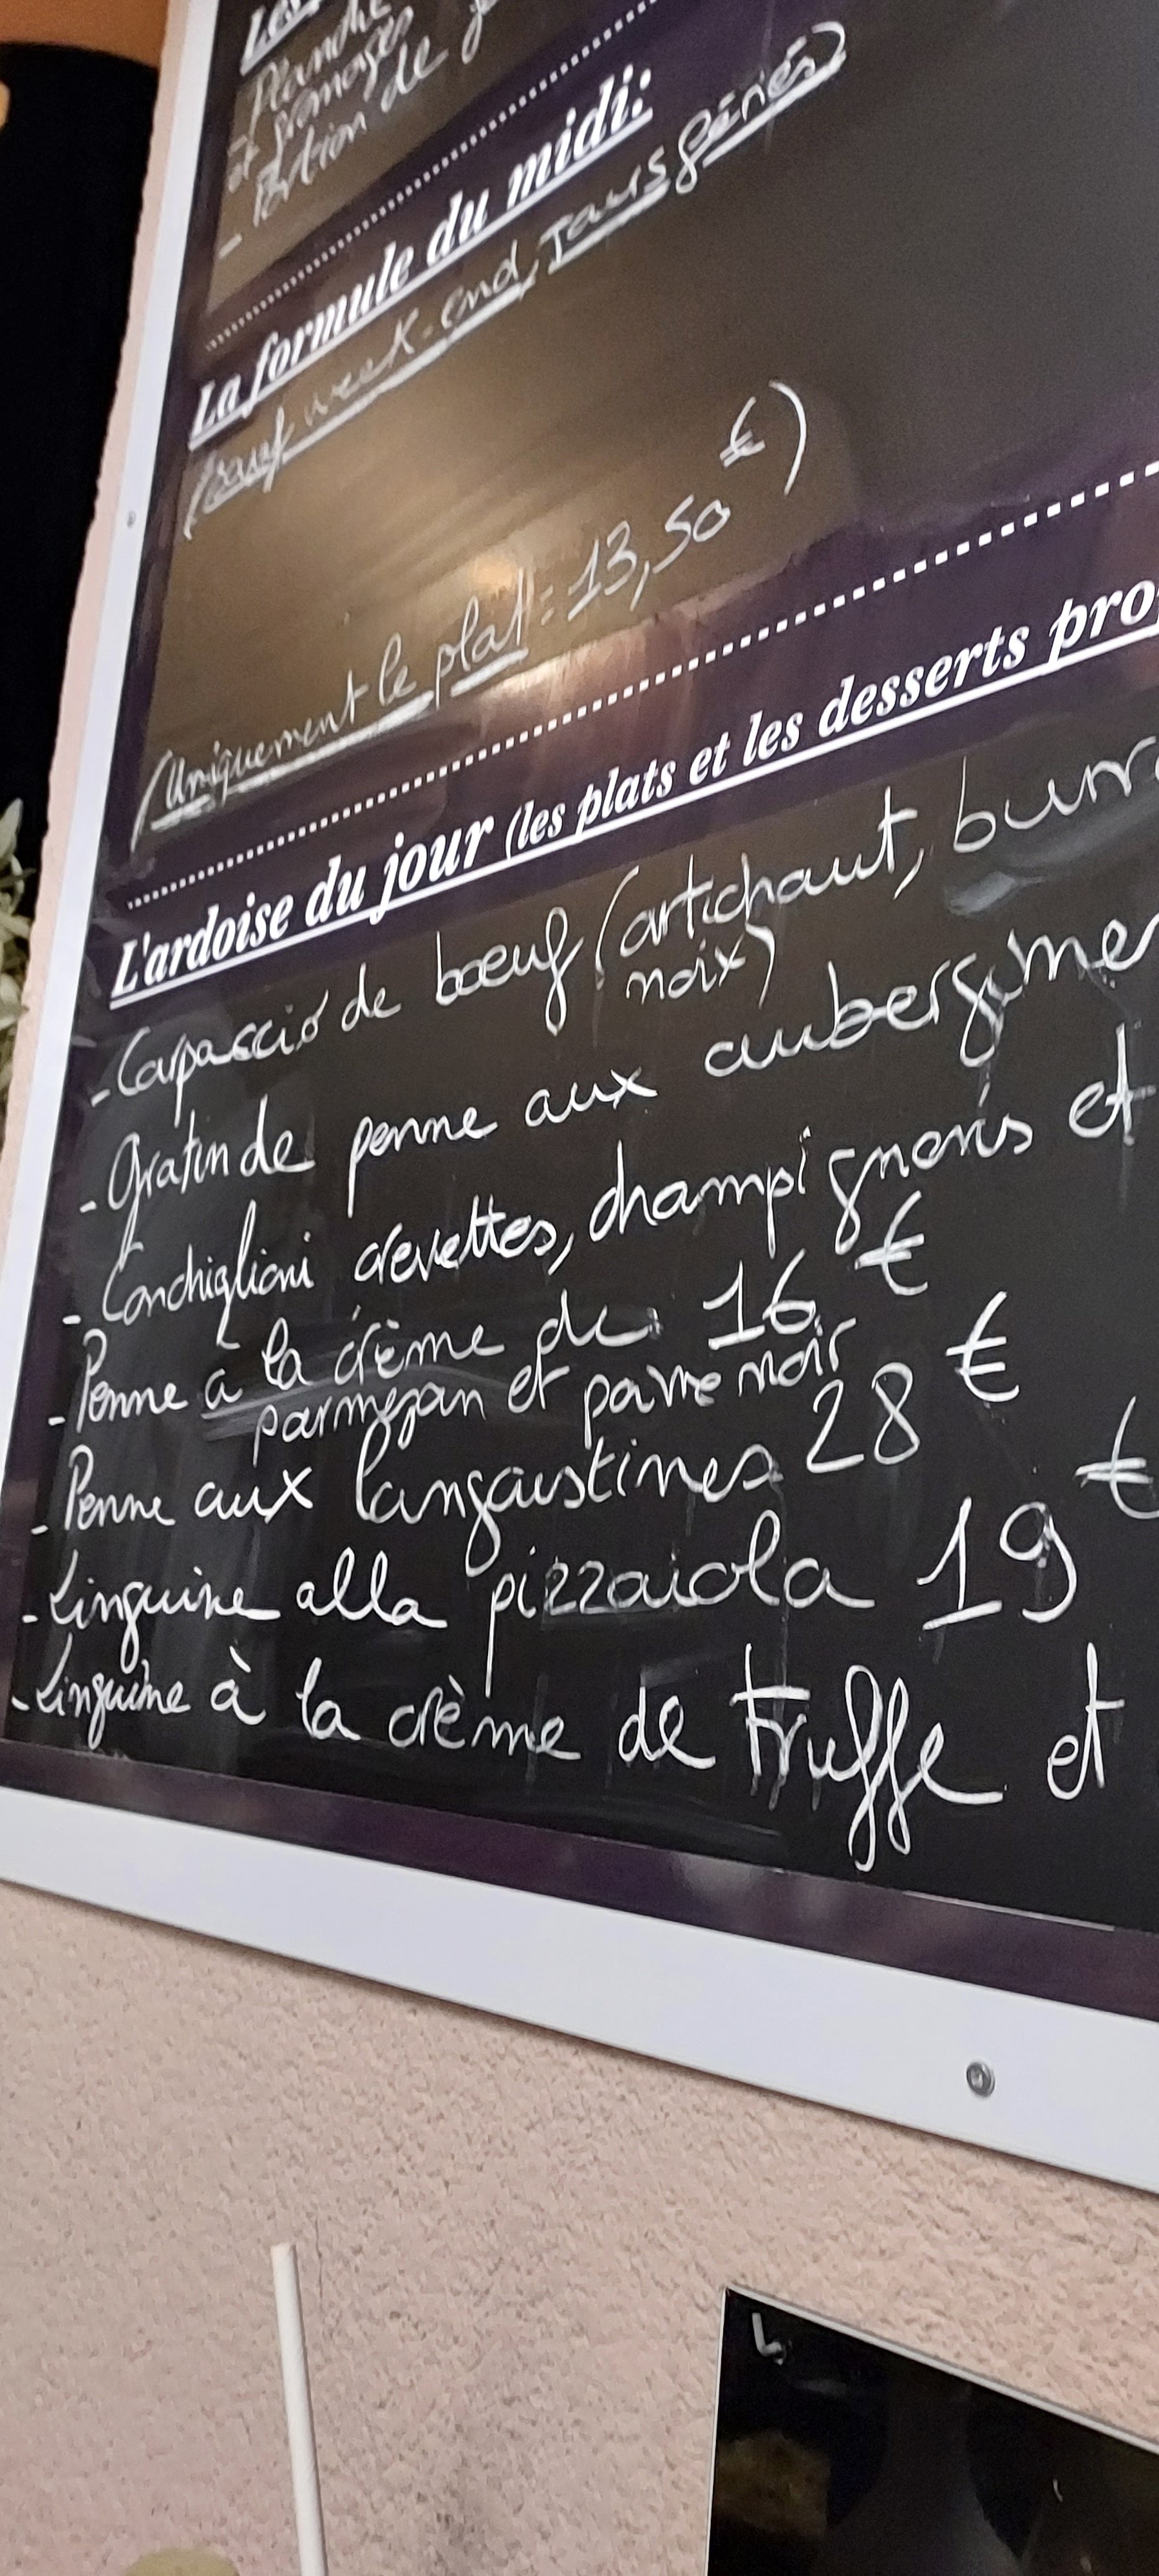 Les
- Planche
et fromages
- Portion de
La formule du midi:
(sauf week-end, jours fériés)
(Uniquement le plat: 13,50 €)
L'ardoise du jour (les plats et les desserts pro
- Carpaccio de bœuf (artichaut, burra
noix)
- Gratin de penne aux aubergines
- Conchiglioni crevettes, champignons et
- Penne à la crème de 16 €
parmesan et poivre noir
- Penne aux langoustines 28 €
- Linguine alla pizzaiola 19 €
- Linguine à la crème de truffe et